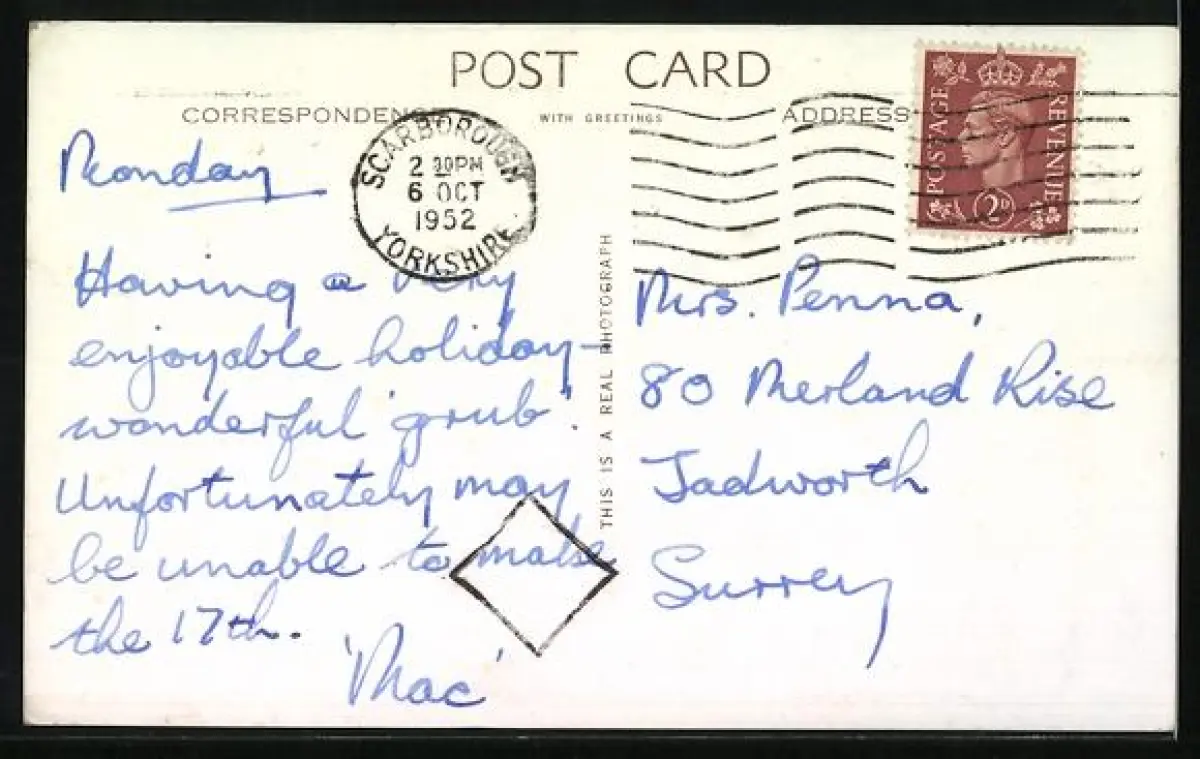 POST CARD
CORRESPONDENCE
WITH GREETINGS
ADDRESS
SCARBOROUGH
2 30PM
6 OCT
1952
YORKSHIRE
POSTAGE
REVENUE
2D
Monday
Having a very
enjoyable holiday -
wonderful 'grub'.
Unfortunately may
be unable to make
the 17th.
'Mac'
THIS IS A REAL PHOTOGRAPH
Mrs. Penna,
80 Merland Rise
Tadworth
Surrey